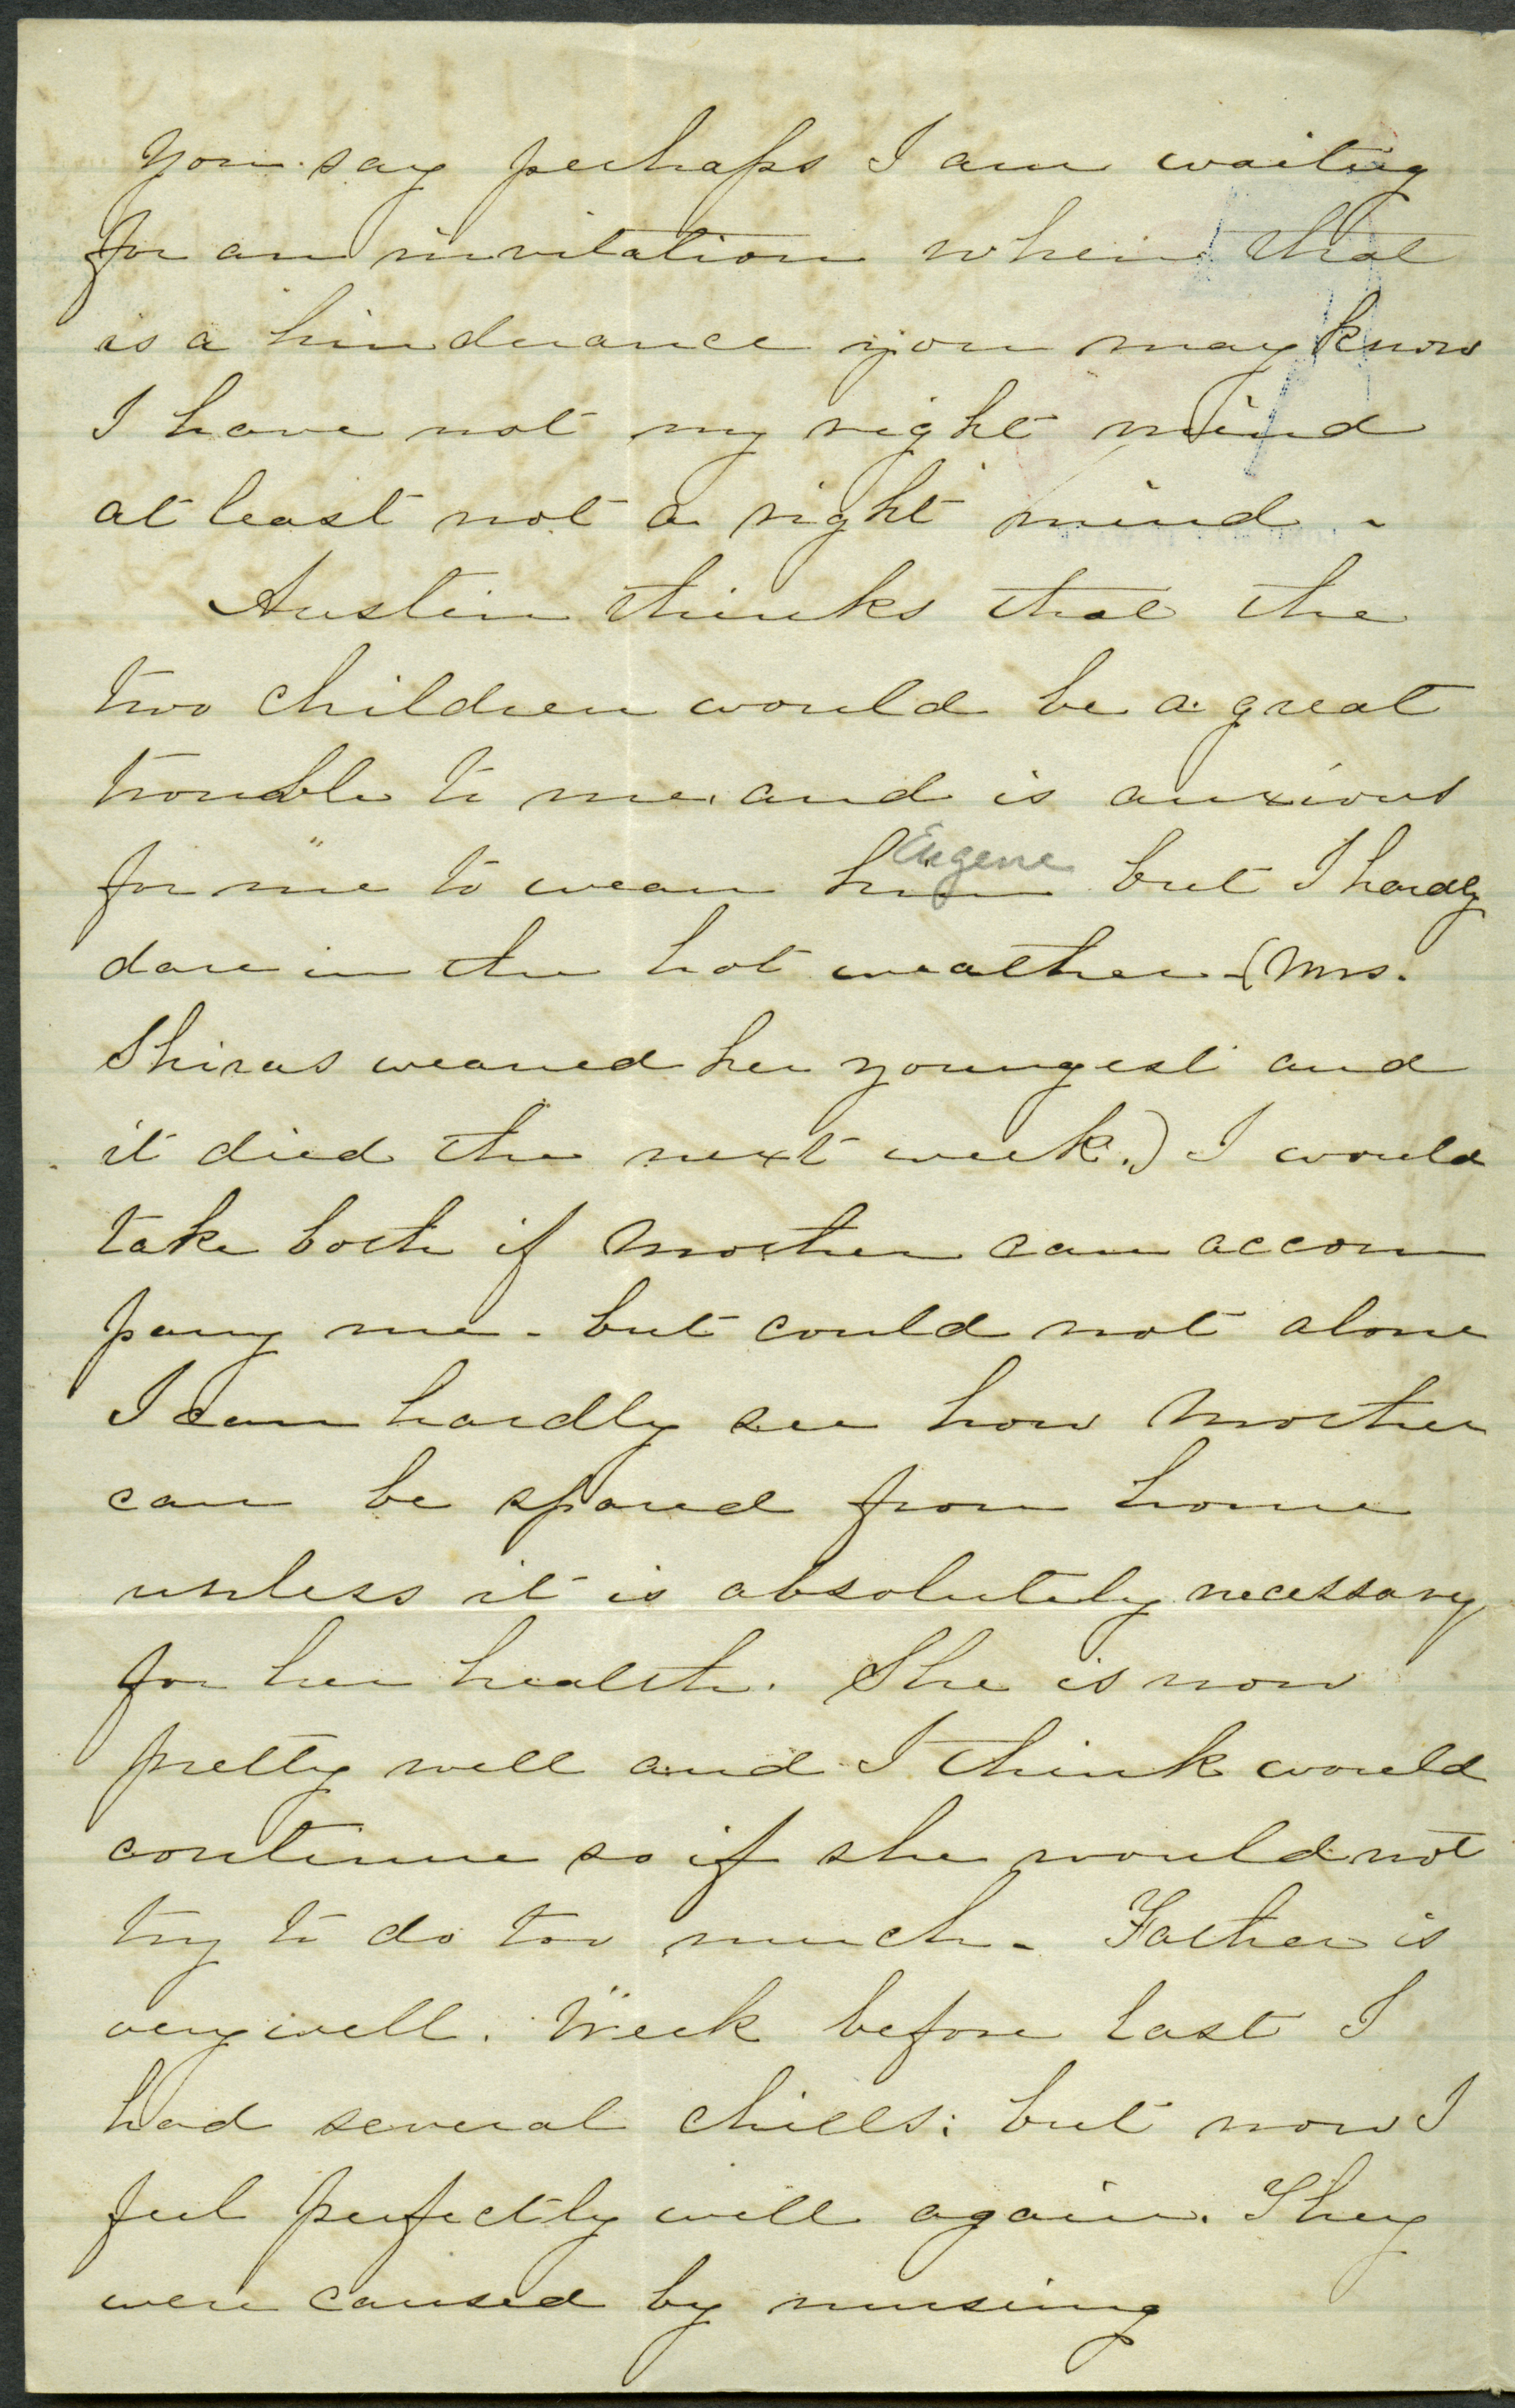 You say perhaps I am waiting
for an invitation when that
is a hinderance you may know
I have not my right mind
at least not a right mind -
Austin thinks that the
two children would be a great
trouble to me, and is anxious
Eugene
for me to wean him but I hardly
dare in the hot weather - (Mrs.
Shiras weaned her youngest and
it died the next week.) I would
take both if Mother can accom
pany me - but could not alone
I can hardly see how Mother
can be spared from home
unless it is absolutely necessary
for her health. She is now
pretty well and I think would
continue so if she would not
try to do too much - Father is
very well. Week before last I
had several chills: but now I
feel perfectly well again. They
were caused by nursing